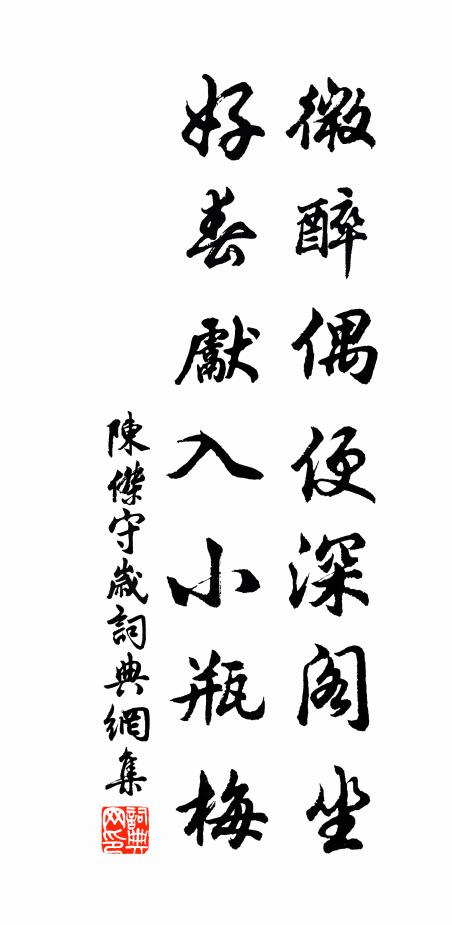 微醉偶便深阁坐
好春獻入小瓶梅
陳傑守歲詞典網集
詞典网印